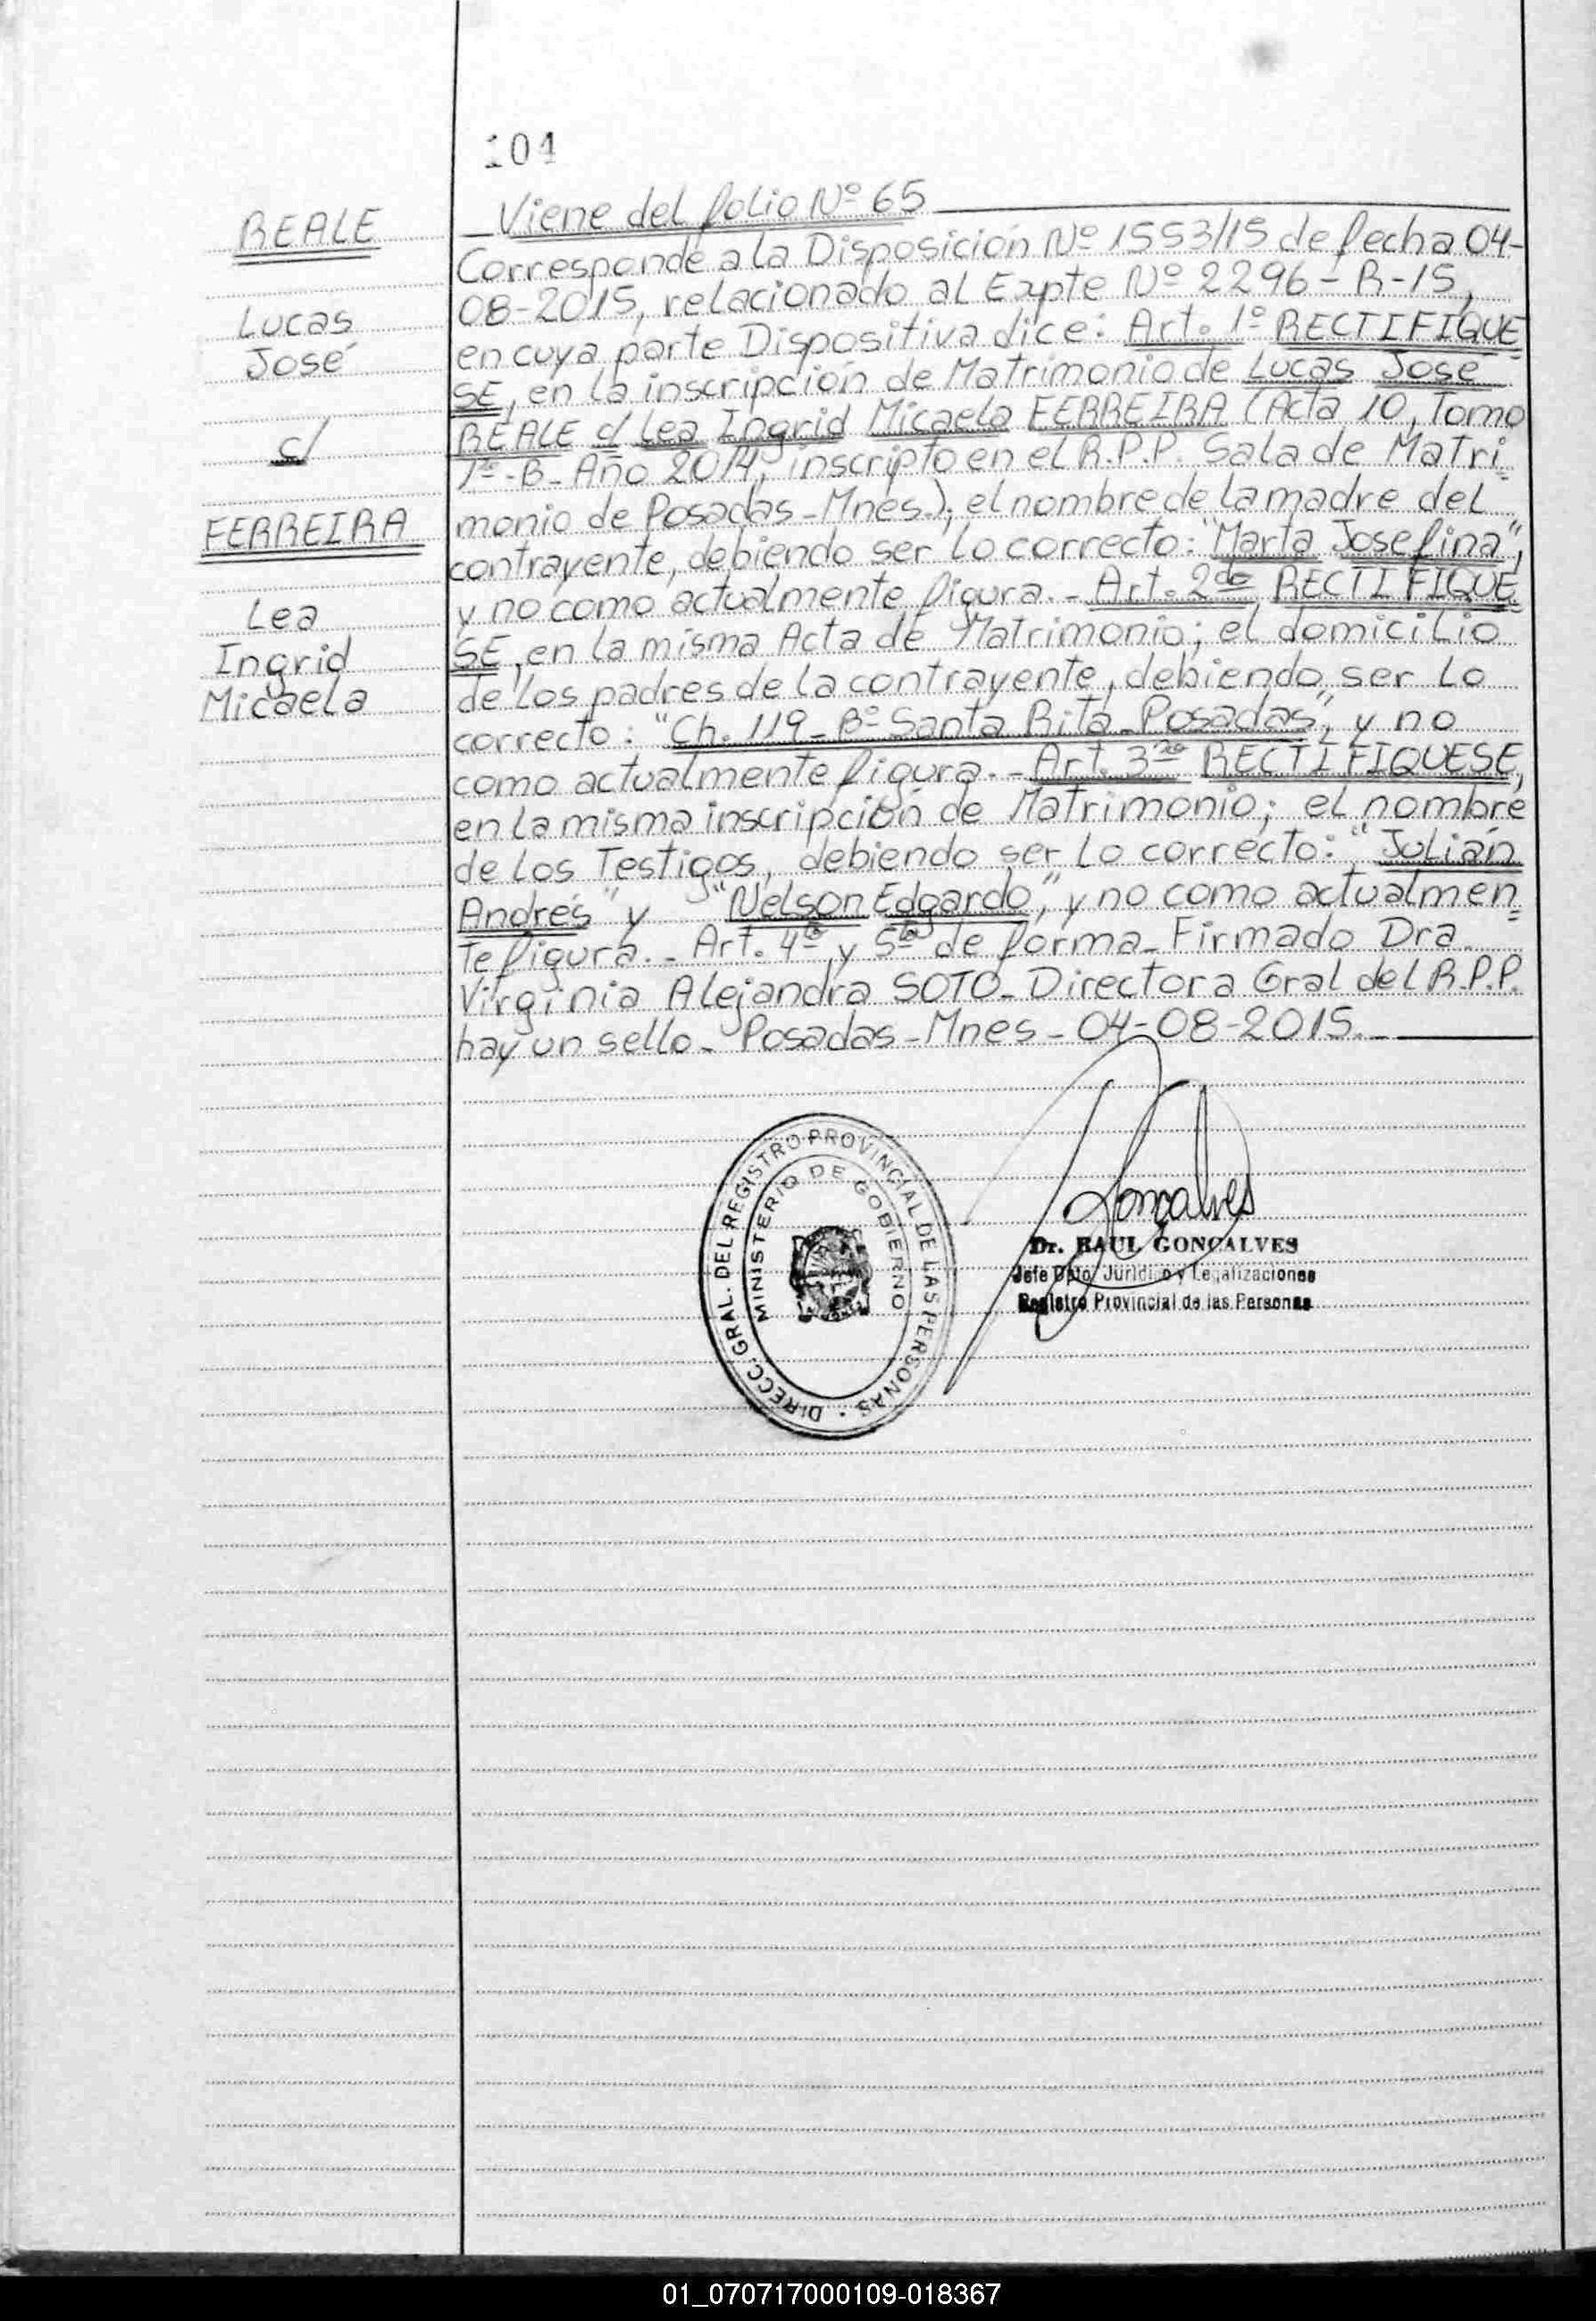 104
REALE
Lucas
José
c/
FERREIRA
Lea
Ingrid
Micaela
Viene del folio Nº 65
Corresponde a la Disposición Nº 1553/15 de fecha 04-
08-2015, relacionado al Expte Nº 2296-R-15,
en cuya parte Dispositiva dice: Art. 1º RECTIFIQUE
SE, en la inscripción de Matrimonio de Lucas José
REALE c/ Lea Ingrid Micaela FERREIRA (Acta 10, Tomo
1º-B- Año 2014, inscripto en el R.P.P. Sala de Matri=
monio de Posadas-Mnes.); el nombre de la madre del
contrayente, debiendo ser lo correcto: "Marta Josefina",
y no como actualmente figura.- Art. 2do RECTIFIQUE
SE, en la misma Acta de Matrimonio; el domicilio
de los padres de la contrayente, debiendo ser lo
correcto: "Ch. 119- Bº Santa Rita-Posadas", y no
como actualmente figura.- Art. 3ro RECTIFIQUESE,
en la misma inscripción de Matrimonio; el nombre
de los Testigos, debiendo ser lo correcto: "Julián
Andrés" y "Nelson Edgardo", y no como actualmen=
te figura.- Art. 4to y 5to de forma- Firmado Dra.
Virginia Alejandra SOTO- Directora Gral del R.P.P.
hay un sello- Posadas-Mnes- 04-08-2015.-
DIRECC. GRAL. DEL REGISTRO PROVINCIAL DE LAS PERSONAS
MINISTERIO DE GOBIERNO
Gonçalves
Dr. RAUL GONÇALVES
Jefe Dpto. Jurídico y Legalizaciones
Registro Provincial de las Personas
01_070717000109-018367